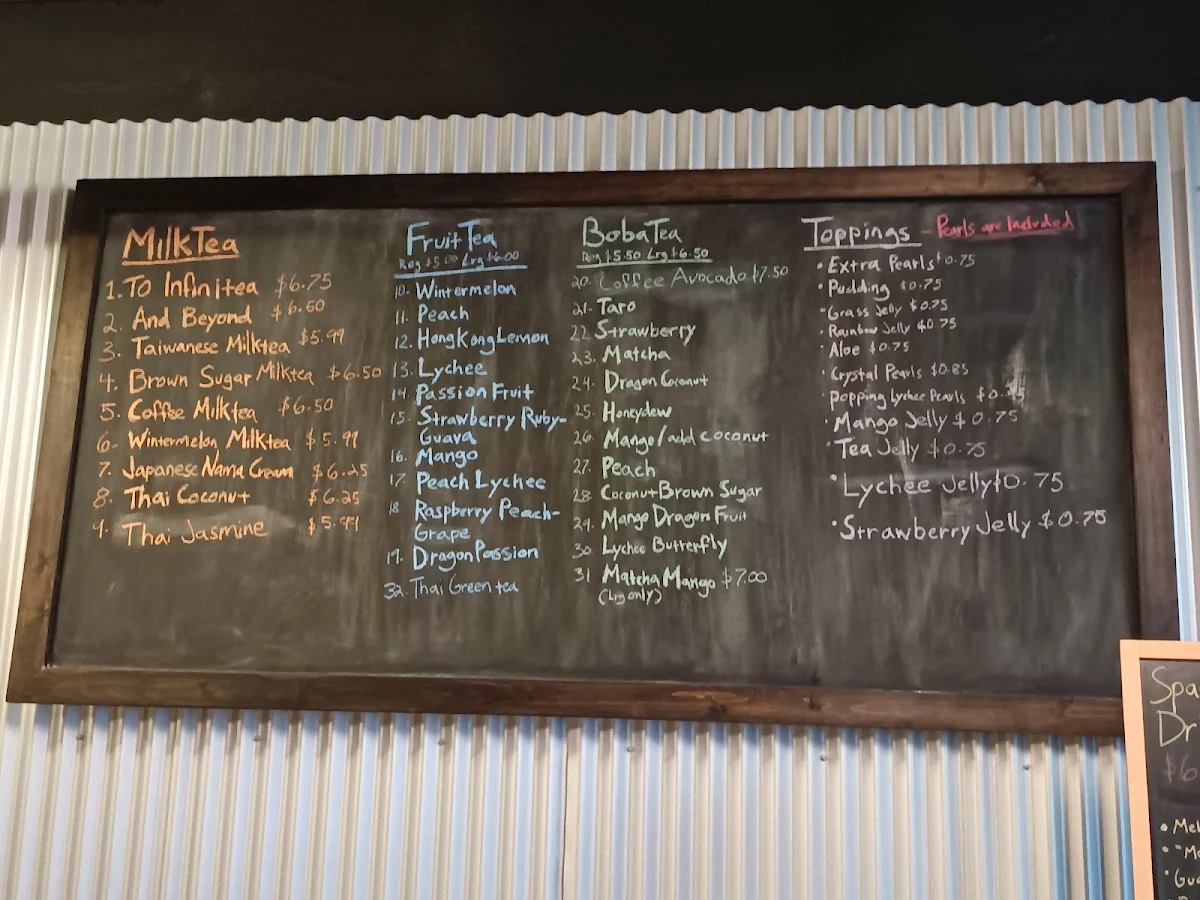 MilkTea
1. To Infinitea $6.75
2. And Beyond $6.60
3. Taiwanese Milktea $5.99
4. Brown Sugar Milktea $6.50
5. Coffee Milktea $6.50
6. Wintermelon Milktea $5.99
7. Japanese Nama Cream $6.25
8. Thai Coconut $6.25
9. Thai Jasmine $5.99
Fruit Tea
Reg $5.00 Lrg $6.00
10. Wintermelon
11. Peach
12. HongKongLemon
13. Lychee
14. Passion Fruit
15. Strawberry Ruby-
Guava
16. Mango
17. Peach Lychee
18 Raspberry Peach-
Grape
19. DragonPassion
32. Thai Green tea
Boba Tea
Reg $5.50 Lrg $6.50
20. Coffee Avocado $7.50
21. Taro
22 Strawberry
23. Matcha
24. Dragon Coconut
25. Honeydew
26. Mango/add coconut
27. Peach
28 Coconut Brown Sugar
29. Mango Dragon Fruit
30. Lychee Butterfly
31 Matcha Mango $7.00
(Lrg only)
Toppings - Pearls are Included
• Extra Pearls $0.75
• Pudding $0.75
• Grass Jelly $0.75
• Rainbow Jelly $0.75
• Aloe $0.75
• Crystal Pearls $0.85
• Popping Lychee Pearls
• Mango Jelly $0.75
• Tea Jelly $0.75
• Lychee Jelly $0.75
• Strawberry Jelly $0.75
Spa
Dr
$6
• Mel
• "Ma
• Gua